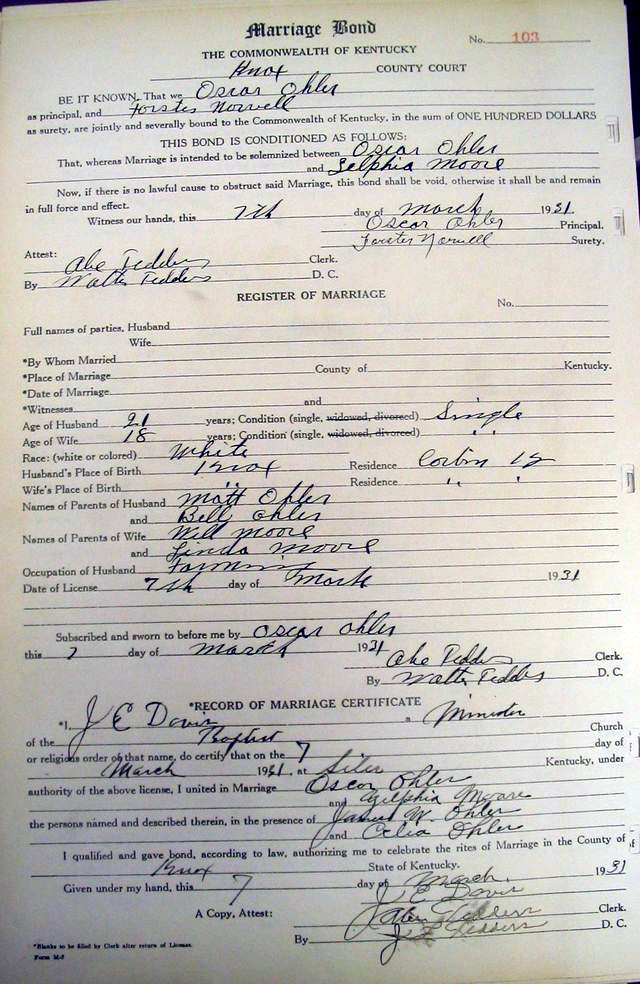 Marriage Bond
No. 103
THE COMMONWEALTH OF KENTUCKY
Knox COUNTY COURT
BE IT KNOWN, That we Oscar Ohler
as principal, and Forster Norvell
as surety, are jointly and severally bound to the Commonwealth of Kentucky, in the sum of ONE HUNDRED DOLLARS
THIS BOND IS CONDITIONED AS FOLLOWS:
That, whereas Marriage is intended to be solemnized between Oscar Ohler
and Zelphia Moore
Now, if there is no lawful cause to obstruct said Marriage, this bond shall be void, otherwise it shall be and remain
in full force and effect.
Witness our hands, this 7th day of March 1931.
Oscar Ohler Principal.
Forster Norvell Surety.
Attest:
Abe Tedders Clerk.
By Walter Tedders D. C.
REGISTER OF MARRIAGE
No.
Full names of parties, Husband
Wife
*By Whom Married
*Place of Marriage County of Kentucky.
*Date of Marriage
*Witnesses and
Age of Husband 21 years; Condition (single, widowed, divorced) Single
Age of Wife 18 years; Condition (single, widowed, divorced) " "
Race: (white or colored) White
Husband's Place of Birth Knox Residence Corbin Ky
Wife's Place of Birth " Residence " "
Names of Parents of Husband Matt Ohler
and Bell Ohler
Names of Parents of Wife Will Moore
and Linda Moore
Occupation of Husband Farming
Date of License 7th day of March 1931
Subscribed and sworn to before me by Oscar Ohler
this 7 day of March 1931
Abe Tedders Clerk.
By Walter Tedders D. C.
*RECORD OF MARRIAGE CERTIFICATE
*I, J E Davis a Minister
of the Baptist Church
or religious order of that name, do certify that on the 7 day of
March 1931, at Siler Kentucky, under
authority of the above license, I united in Marriage Oscar Ohler
and Zelphia Moore
the persons named and described therein, in the presence of James W. Ohler
and Celia Ohler
I qualified and gave bond, according to law, authorizing me to celebrate the rites of Marriage in the County of
Knox State of Kentucky.
Given under my hand, this 7 day of March, 1931
J E Davis
A Copy, Attest: Tedders Clerk.
By Tedders D. C.
*Blanks to be filled by Clerk after return of License.
Form M-2